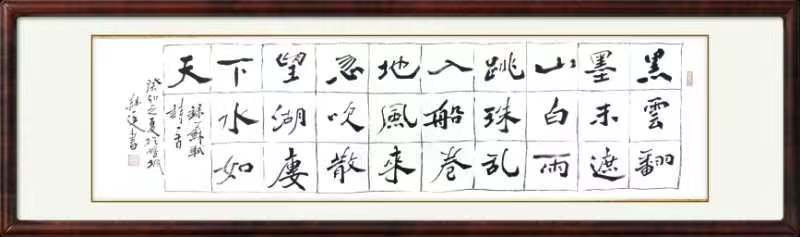 黑雲翻
墨未遮
山白雨
跳珠乱
入船卷
地風来
忽吹散
望湖廔
下水如
天
録蘇軾
詩一首
癸卯之夏於
書